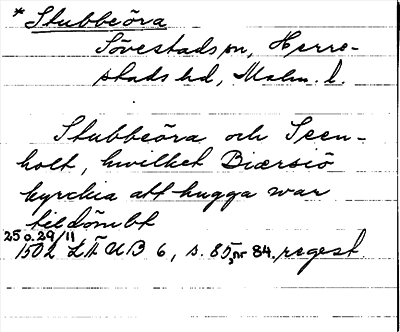 * Stubbeöra
Sövestads sn, Herre-
stads hd, Malm. l.
Stubbeöra och Steen-
holt, hwilket Biærsiö
kyrckia att hugga war
tildömbt
25 o. 29/11
1502 LÄUB 6, s. 85, nr 84. regest.